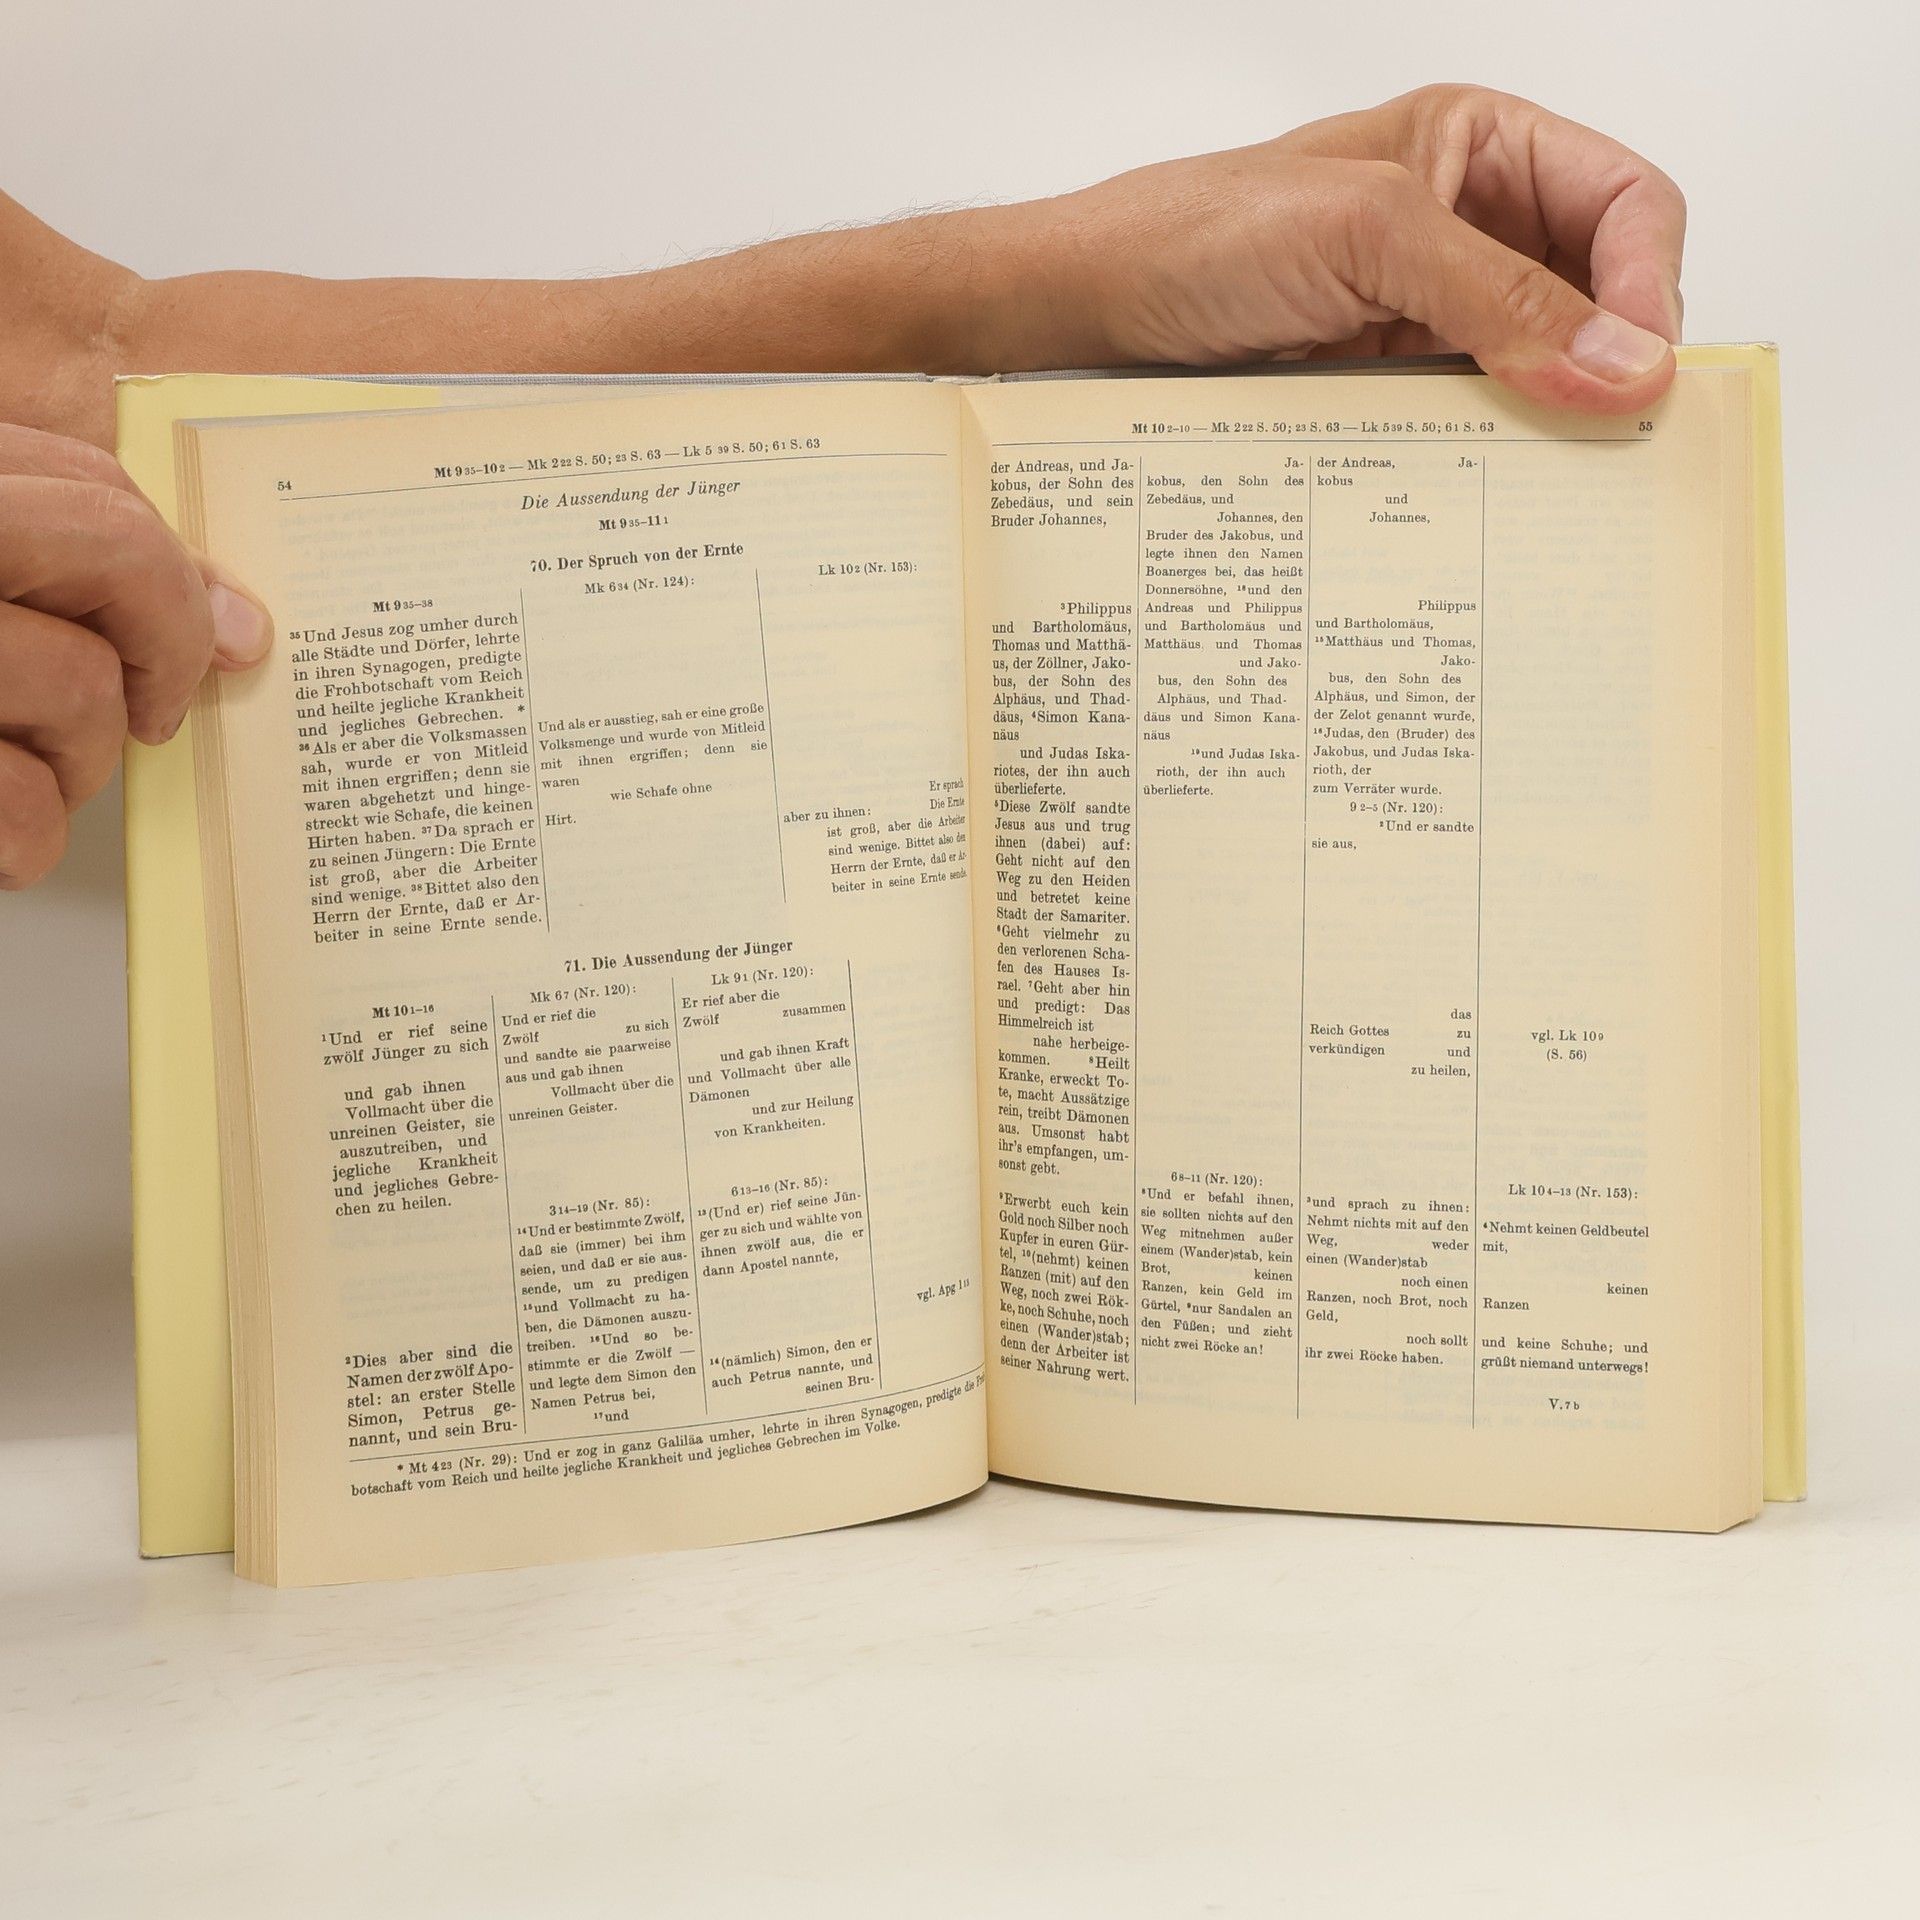 54
Mt 9 35–10 2 — Mk 2 22 S. 50; 23 S. 63 — Lk 5 39 S. 50; 61 S. 63
Die Aussendung der Jünger
Mt 9 35–11 1
70. Der Spruch von der Ernte
Mt 9 35–38
³⁵Und Jesus zog umher durch
alle Städte und Dörfer, lehrte
in ihren Synagogen, predigte
die Frohbotschaft vom Reich
und heilte jegliche Krankheit
und jegliches Gebrechen. *
³⁶Als er aber die Volksmassen
sah, wurde er von Mitleid
mit ihnen ergriffen; denn sie
waren abgehetzt und hinge-
streckt wie Schafe, die keinen
Hirten haben. ³⁷Da sprach er
zu seinen Jüngern: Die Ernte
ist groß, aber die Arbeiter
sind wenige. ³⁸Bittet also den
Herrn der Ernte, daß er Ar-
beiter in seine Ernte sende.
Mk 6 34 (Nr. 124):
Und als er ausstieg, sah er eine große
Volksmenge und wurde von Mitleid
mit ihnen ergriffen; denn sie
waren
wie Schafe ohne
Hirt.
Lk 10 2 (Nr. 153):
Er sprach
aber zu ihnen: Die Ernte
ist groß, aber die Arbeiter
sind wenige. Bittet also den
Herrn der Ernte, daß er Ar-
beiter in seine Ernte sende.
71. Die Aussendung der Jünger
Mt 10 1–16
¹Und er rief seine
zwölf Jünger zu sich
und gab ihnen
Vollmacht über die
unreinen Geister, sie
auszutreiben, und
jegliche Krankheit
und jegliches Gebre-
chen zu heilen.
²Dies aber sind die
Namen der zwölf Apo-
stel: an erster Stelle
Simon, Petrus ge-
nannt, und sein Bru-
Mk 6 7 (Nr. 120):
Und er rief die
Zwölf zu sich
und sandte sie paarweise
aus und gab ihnen
Vollmacht über die
unreinen Geister.
3 14–19 (Nr. 85):
¹⁴Und er bestimmte Zwölf,
daß sie (immer) bei ihm
seien, und daß er sie aus-
sende, um zu predigen
¹⁵und Vollmacht zu ha-
ben, die Dämonen auszu-
treiben. ¹⁶Und so be-
stimmte er die Zwölf —
und legte dem Simon den
Namen Petrus bei,
¹⁷und
Lk 9 1 (Nr. 120):
Er rief aber die
Zwölf zusammen
und gab ihnen Kraft
und Vollmacht über alle
Dämonen
und zur Heilung
von Krankheiten.
6 13–16 (Nr. 85):
¹³(Und er) rief seine Jün-
ger zu sich und wählte von
ihnen zwölf aus, die er
dann Apostel nannte,
¹⁴(nämlich) Simon, den er
auch Petrus nannte, und
seinen Bru-
vgl. Apg 1 13
* Mt 4 23 (Nr. 29): Und er zog in ganz Galiläa umher, lehrte in ihren Synagogen, predigte die
botschaft vom Reich und heilte jegliche Krankheit und jegliches Gebrechen im Volke.
Mt 10 2–10 — Mk 2 22 S. 50; 23 S. 63 — Lk 5 39 S. 50; 61 S. 63
55
der Andreas, und Ja-
kobus, der Sohn des
Zebedäus, und sein
Bruder Johannes,
³Philippus
und Bartholomäus,
Thomas und Matthä-
us, der Zöllner, Jako-
bus, der Sohn des
Alphäus, und Thad-
däus, ⁴Simon Kana-
näus
und Judas Iska-
riotes, der ihn auch
überlieferte.
⁵Diese Zwölf sandte
Jesus aus und trug
ihnen (dabei) auf:
Geht nicht auf den
Weg zu den Heiden
und betretet keine
Stadt der Samariter.
⁶Geht vielmehr zu
den verlorenen Scha-
fen des Hauses Is-
rael. ⁷Geht aber hin
und predigt: Das
Himmelreich ist
nahe herbeige-
kommen. ⁸Heilt
Kranke, erweckt To-
te, macht Aussätzige
rein, treibt Dämonen
aus. Umsonst habt
ihr's empfangen, um-
sonst gebt.
⁹Erwerbt euch kein
Gold noch Silber noch
Kupfer in euren Gür-
tel, ¹⁰(nehmt) keinen
Ranzen (mit) auf den
Weg, noch zwei Rök-
ke, noch Schuhe, noch
einen (Wander)stab;
denn der Arbeiter ist
seiner Nahrung wert.
Ja-
kobus, den Sohn des
Zebedäus, und
Johannes, den
Bruder des Jakobus, und
legte ihnen den Namen
Boanerges bei, das heißt
Donnersöhne, ¹⁸und den
Andreas und Philippus
und Bartholomäus und
Matthäus und Thomas
und Jako-
bus, den Sohn des
Alphäus, und Thad-
däus und Simon Kana-
näus
¹⁹und Judas Iska-
rioth, der ihn auch
überlieferte.
6 8–11 (Nr. 120):
⁸Und er befahl ihnen,
sie sollten nichts auf den
Weg mitnehmen außer
einem (Wander)stab, kein
Brot, keinen
Ranzen, kein Geld im
Gürtel, ⁹nur Sandalen an
den Füßen; und zieht
nicht zwei Röcke an!
der Andreas, Ja-
kobus
und
Johannes,
Philippus
und Bartholomäus,
¹⁵Matthäus und Thomas,
Jako-
bus, den Sohn des
Alphäus, und Simon, der
der Zelot genannt wurde,
¹⁶Judas, den (Bruder) des
Jakobus, und Judas Iska-
rioth, der
zum Verräter wurde.
9 2–5 (Nr. 120):
²Und er sandte
sie aus,
das
Reich Gottes zu
verkündigen und
zu heilen,
³und sprach zu ihnen:
Nehmt nichts mit auf den
Weg, weder
einen (Wander)stab
noch einen
Ranzen, noch Brot, noch
Geld,
noch sollt
ihr zwei Röcke haben.
vgl. Lk 10 9
(S. 56)
Lk 10 4–13 (Nr. 153):
⁴Nehmt keinen Geldbeutel
mit,
keinen
Ranzen
und keine Schuhe; und
grüßt niemand unterwegs!
V. 7 b